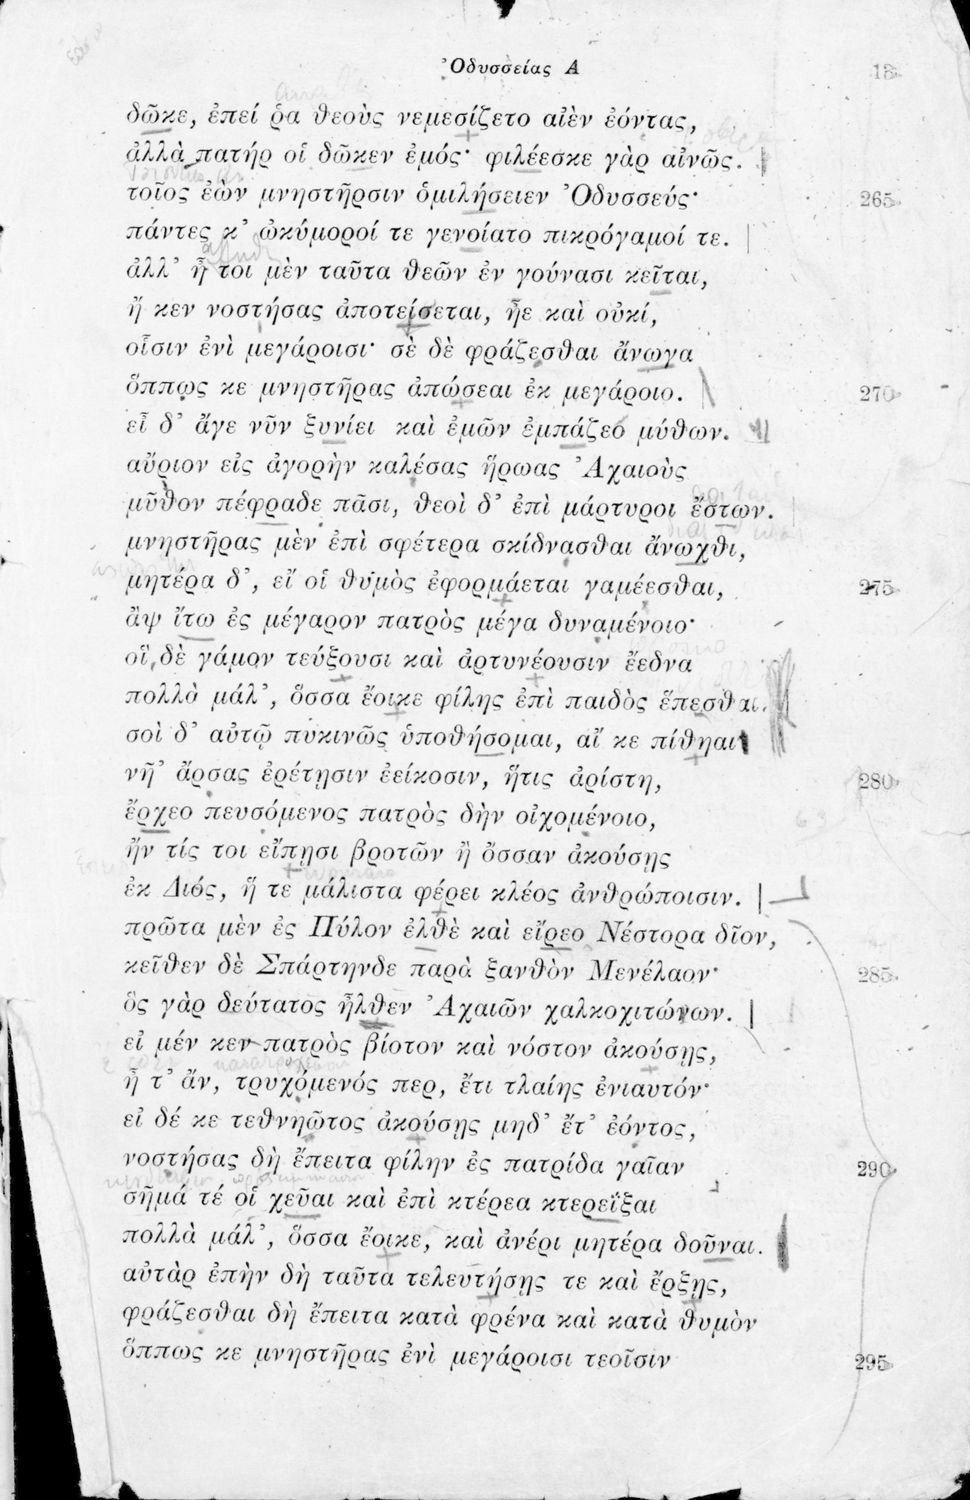 Ὀδυσσείας Α 13
δῶκε, ἐπεί ῥα θεοὺς νεμεσίζετο αἰὲν ἐόντας,
ἀλλὰ πατήρ οἱ δῶκεν ἐμός· φιλέεσκε γὰρ αἰνῶς.
τοῖος ἐὼν μνηστῆρσιν ὁμιλήσειεν Ὀδυσσεύς· 265
πάντες κ’ ὠκύμοροί τε γενοίατο πικρόγαμοί τε.
ἀλλ’ ἦ τοι μὲν ταῦτα θεῶν ἐν γούνασι κεῖται,
ἤ κεν νοστήσας ἀποτείσεται, ἦε καὶ οὐκί,
οἷσιν ἐνὶ μεγάροισι· σὲ δὲ φράζεσθαι ἄνωγα
ὅππως κε μνηστῆρας ἀπώσεαι ἐκ μεγάροιο. 270
εἶ δ’ ἄγε νῦν ξυνίει καὶ ἐμῶν ἐμπάζεο μύθων.
αὔριον εἰς ἀγορὴν καλέσας ἥρωας Ἀχαιοὺς
μῦθον πέφραδε πᾶσι, θεοὶ δ’ ἐπὶ μάρτυροι ἔστων.
μνηστῆρας μὲν ἐπὶ σφέτερα σκίδνασθαι ἄνωχθι,
μητέρα δ’, εἴ οἱ θυμὸς ἐφορμάεται γαμέεσθαι, 275
ἂψ ἴτω ἐς μέγαρον πατρὸς μέγα δυναμένοιο·
οἳ δὲ γάμον τεύξουσι καὶ ἀρτυνέουσιν ἔεδνα
πολλὰ μάλ’, ὅσσα ἔοικε φίλης ἐπὶ παιδὸς ἕπεσθαι.
σοὶ δ’ αὐτῷ πυκινῶς ὑποθήσομαι, αἴ κε πίθηαι
νῆ’ ἄρσας ἐρέτῃσιν ἐείκοσιν, ἥτις ἀρίστη, 280
ἔρχεο πευσόμενος πατρὸς δὴν οἰχομένοιο,
ἤν τίς τοι εἴπῃσι βροτῶν ἢ ὄσσαν ἀκούσῃς
ἐκ Διός, ἥ τε μάλιστα φέρει κλέος ἀνθρώποισιν.
πρῶτα μὲν ἐς Πύλον ἐλθὲ καὶ εἴρεο Νέστορα δῖον,
κεῖθεν δὲ Σπάρτηνδε παρὰ ξανθὸν Μενέλαον· 285
ὃς γὰρ δεύτατος ἦλθεν Ἀχαιῶν χαλκοχιτώνων.
εἰ μέν κεν πατρὸς βίοτον καὶ νόστον ἀκούσῃς,
ἦ τ’ ἄν, τρυχόμενός περ, ἔτι τλαίης ἐνιαυτόν·
εἰ δέ κε τεθνηῶτος ἀκούσῃς μηδ’ ἔτ’ ἐόντος,
νοστήσας δὴ ἔπειτα φίλην ἐς πατρίδα γαῖαν 290
σῆμά τέ οἱ χεῦαι καὶ ἐπὶ κτέρεα κτερεΐξαι
πολλὰ μάλ’, ὅσσα ἔοικε, καὶ ἀνέρι μητέρα δοῦναι.
αὐτὰρ ἐπὴν δὴ ταῦτα τελευτήσῃς τε καὶ ἔρξῃς,
φράζεσθαι δὴ ἔπειτα κατὰ φρένα καὶ κατὰ θυμὸν
ὅππως κε μνηστῆρας ἐνὶ μεγάροισι τεοῖσιν 295